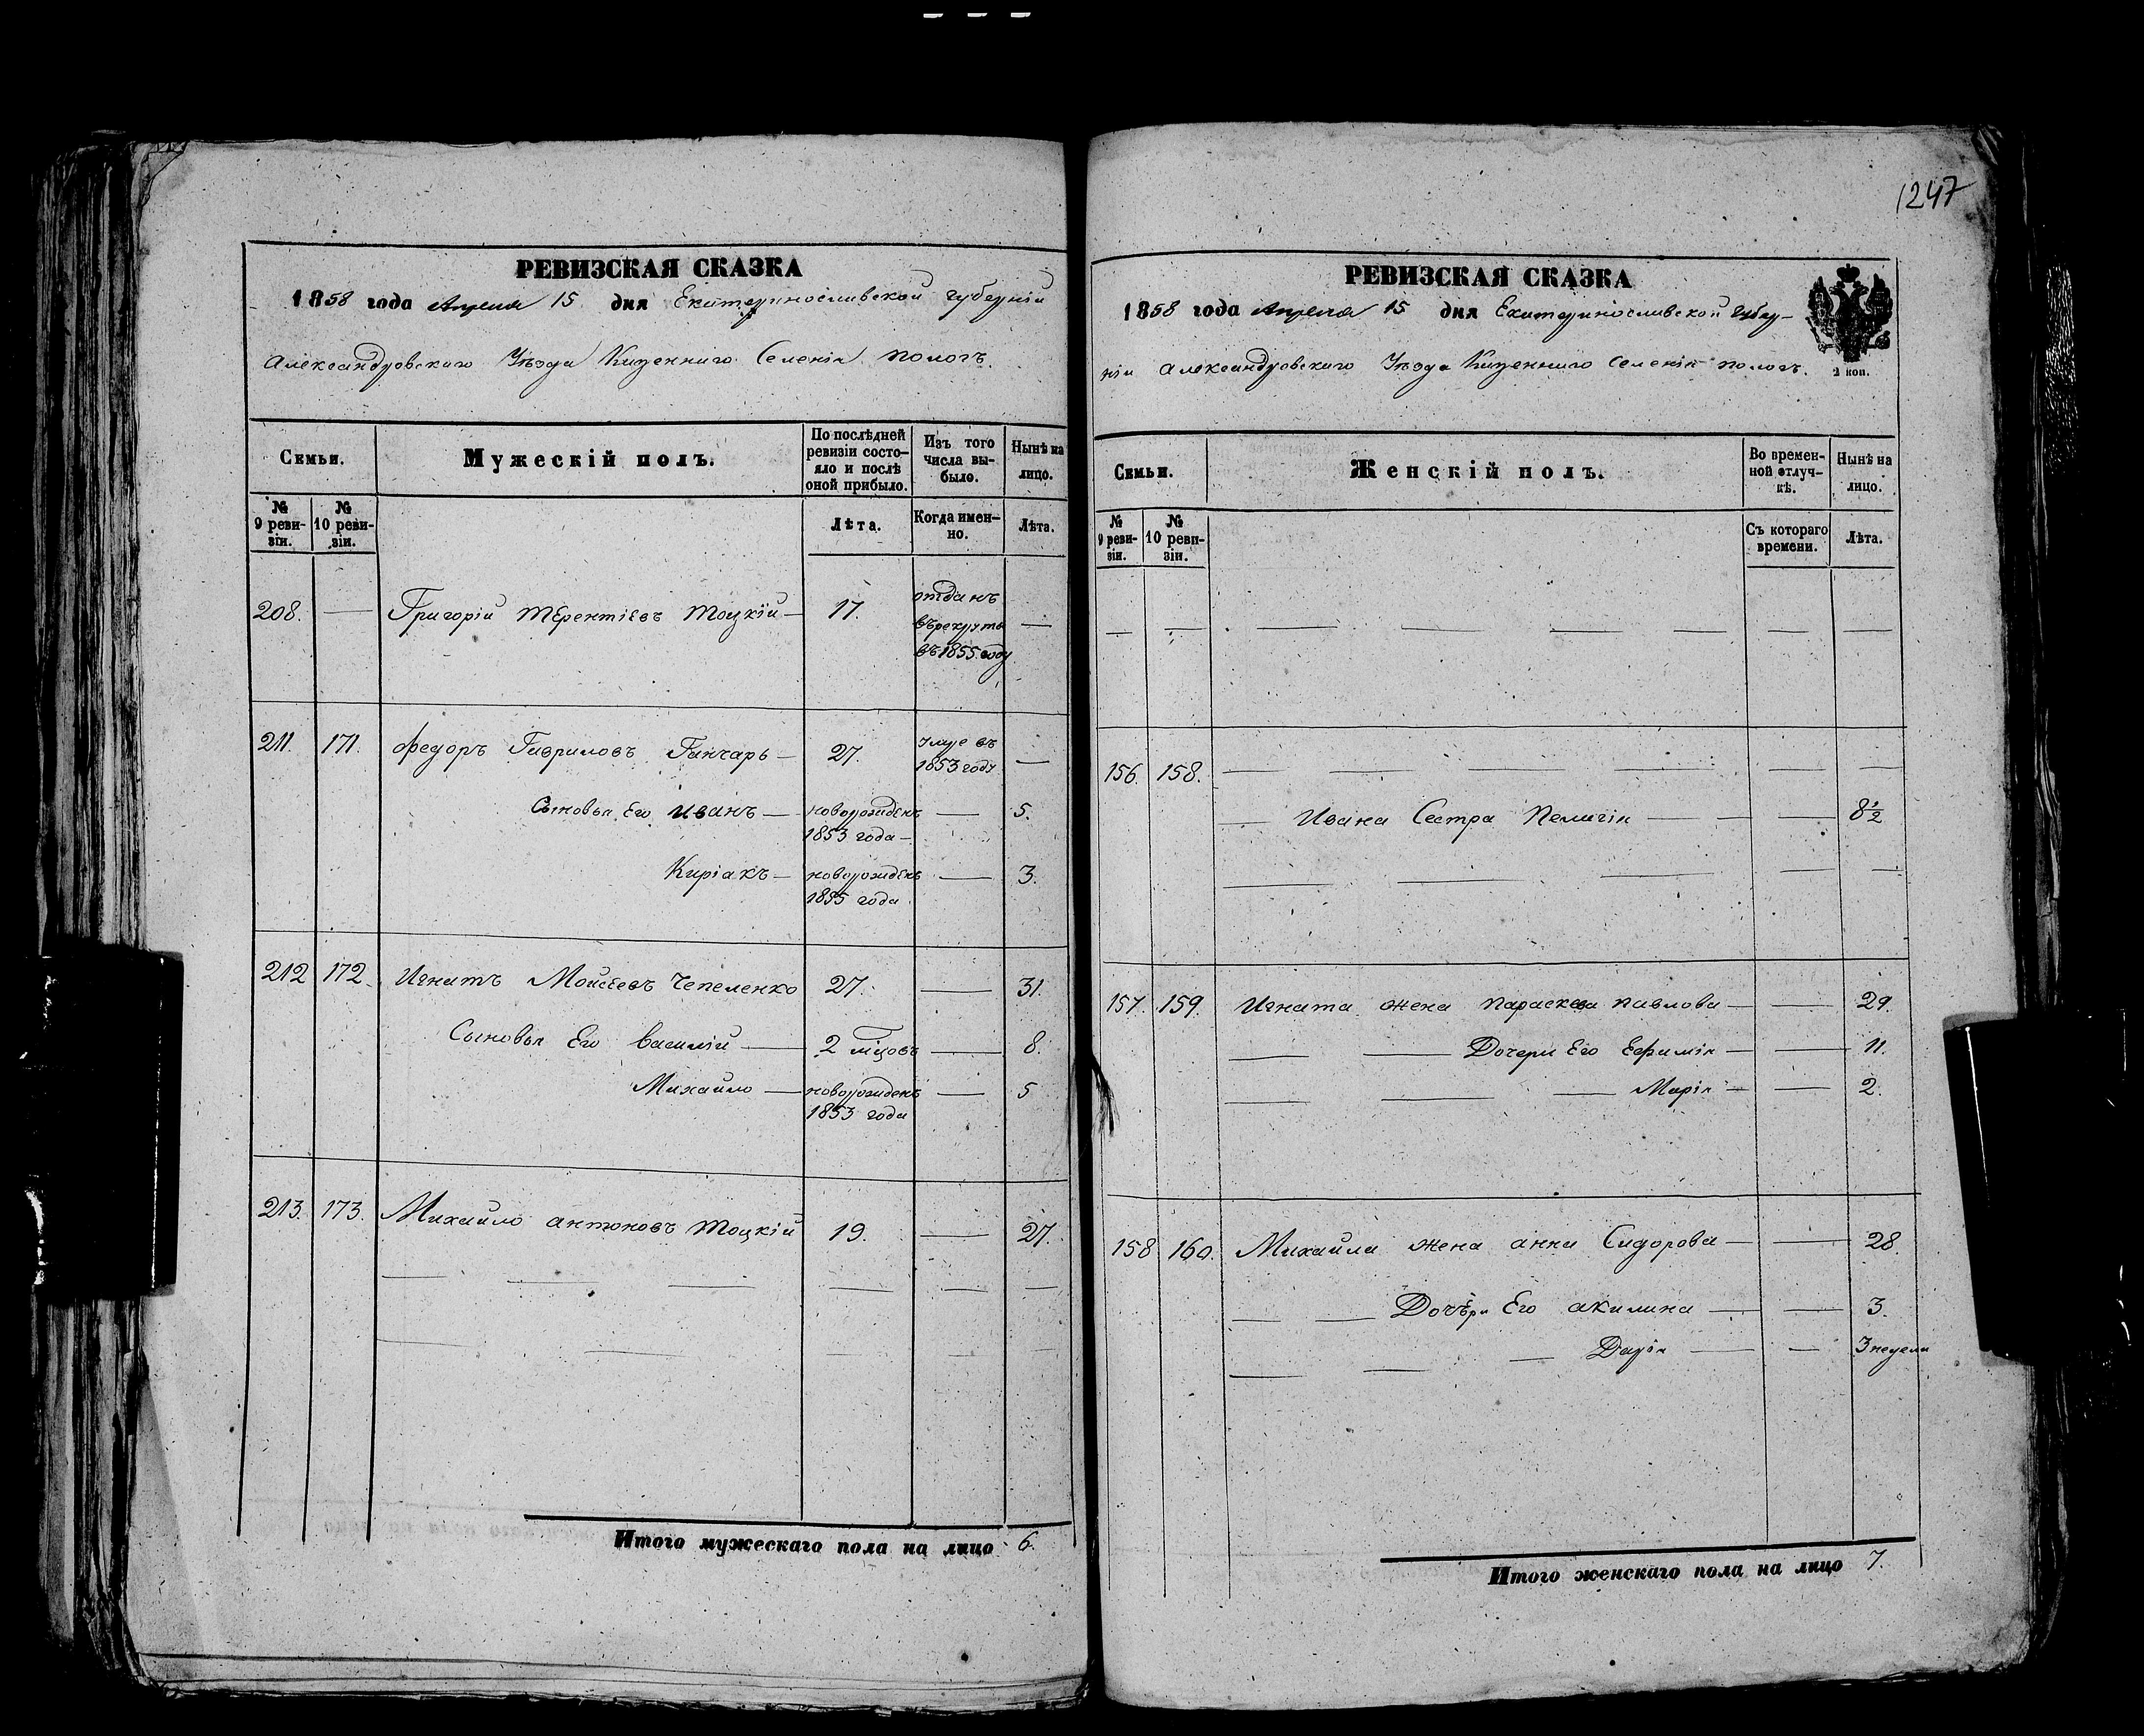 1247
РЕВИЗСКАЯ СКАЗКА
1858 года Апреля 15 дня Екатеринославской губерніи
Александровскаго Уѣзда Казеннаго Селенія Пологъ.
Семьи.
Мужескій полъ.
По послѣдней ревизіи состояло и послѣ оной прибыло.
Изъ того числа выбыло.
Нынѣ на лицо.
№ 9 ревизіи.
№ 10 ревизіи.
Лѣта.
Когда именно.
Лѣта.
208. — Григорій Терентіевъ Тоцкій — 17. отданъ —
въ рекруты
въ 1855 году
211. 171. Федоръ Гавриловъ Ганчарь — 27. умре въ —
1853 году
Сыновья Его Иванъ — новорожденъ — 5.
1853 года —
Киріакъ — новорожденъ — 3.
1855 года
212 172. Игнатъ Мойсеевъ Чепеленко 27. — 31.
Сыновья Его Василій — 2 — 8.
Михайло — новорожденъ — 5
1853 года
213. 173. Михайло Антоновъ Тоцкій 19. — 27.
Итого мужескаго пола на лицо 6.
РЕВИЗСКАЯ СКАЗКА
1858 года Апреля 15 дня Екатеринославской Губер-
ніи Александровскаго Уѣзда Казеннаго Селенія Пологъ.
2 коп.
Семьи.
Женскій полъ.
Во временной отлучкѣ.
Нынѣ на лицо.
№ 9 ревизіи.
№ 10 ревизіи.
Съ котораго времени.
Лѣта.
156. 158. —
— Ивана Сестра Пелагія — — 8 1/2
157. 159. Игната жена Параскева Павлова — — 29.
— — Дочери Его Ефимія — — 11.
— — — Марія — — 2.
158 160. Михайла жена Анна Сидорова — — 28.
— — Дочѣри Его Акилина — — 3.
— — — Дарія — — 3 недели
Итого женскаго пола на лицо 7.